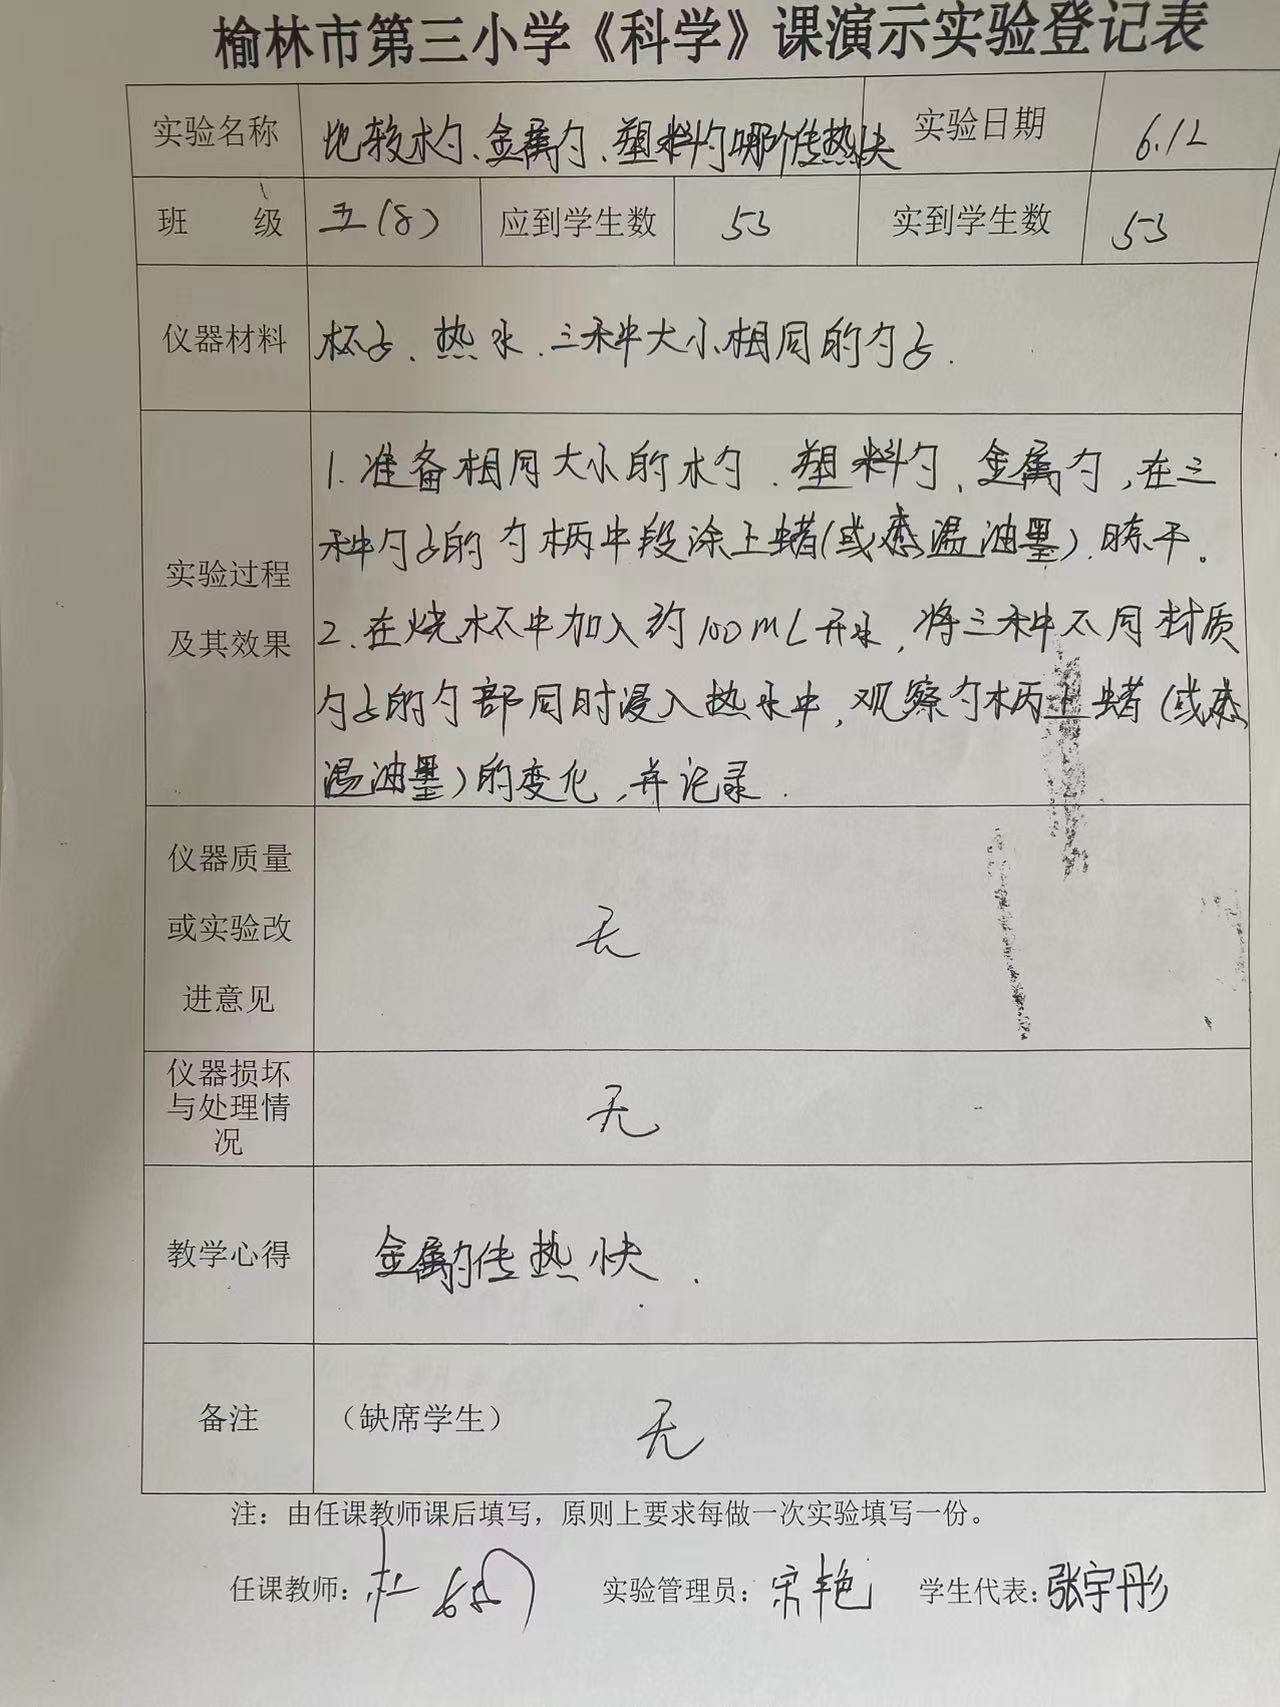 榆林市第三小学《科学》课演示实验登记表
实验名称 比较木勺、金属勺、塑料勺哪个传热快 实验日期 6.12
班 级 五(8) 应到学生数 53 实到学生数 53
仪器材料 杯子、热水、三种大小相同的勺子.
实验过程及其效果
1.准备相同大小的木勺、塑料勺、金属勺,在三
种勺子的勺柄中段涂上蜡(或感温油墨),晾干。
2.在烧杯中加入约100mL开水,将三种不同材质
勺子的勺部同时浸入热水中,观察勺柄上蜡(或感
温油墨)的变化,并记录.
仪器质量
或实验改
进意见
无
仪器损坏
与处理情
况
无
教学心得 金属勺传热快.
备注 (缺席学生) 无
注：由任课教师课后填写，原则上要求每做一次实验填写一份。
任课教师: 杜 实验管理员: 宋艳 学生代表: 张宇彤